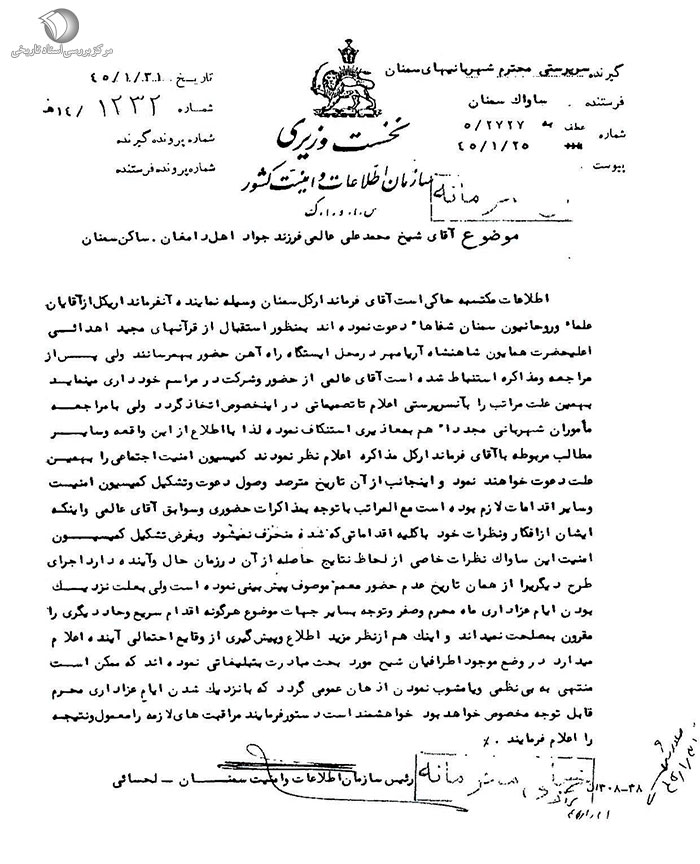 مرکز بررسی اسناد تاریخی
گیرنده سرپرستی محترم شهربانیهای سمنان
فرستنده . ساواك سمنان
شماره عطف به ۵/۲۷۲۷
۴۵/۱/۲۵
پیوست
تاریخ ۴۵/۱/۳۱
شماره ۱۲۳۲ /۱۴ﻫ
شماره پرونده گیرنده
شماره پرونده فرستنده
نخست وزیری
سازمان اطلاعات و امنیت کشور
س.ا.و.ا.ک
موضوع آقای شیخ محمدعلی عالمی فرزند جواد اهل دامغان . ساکن سمنان
اطلاعات مکتسبه حاکی است آقای فرماندارکل سمنان وسیله نماینده آنفرمانداریکل از آقایان
علماء وروحانیون سمنان شفاها" دعوت نموده اند بمنظور استقبال از قرآنهای مجید اهدائی
اعلیحضرت همایون شاهنشاه آریامهر درمحل ایستگاه راه آهن حضور بهمرسانند ولی پس از
مراجعه ومذاکره استنباط شده است آقای عالمی از حضور وشرکت در مراسم خودداری مینماید
بهمین علت مراتب را بآنسرپرستی اعلام تاتصمیماتی دراینخصوص اتخاذ گردد ولی با مراجعه
مأموران شهربانی مجددا" هم بمعاذیری استنکاف نموده لذا بااطلاع از این واقعه وسایر
مطالب مربوطه باآقای فرماندارکل مذاکره اعلام نظر نمودند کمیسیون امنیت اجتماعی را بهمین
علت دعوت خواهند نمود و اینجانب از آن تاریخ مترصد وصول دعوت وتشکیل کمیسیون امنیت
وسایر اقدامات لازم بوده است مع المراتب با توجه بمذاکرات حضوری وسوابق آقای عالمی واینکه
ایشان ازافکار ونظرات خود باکلیه اقداماتی که شده منحرف نمیشود وبفرض تشکیل کمیسیون
امنیت این ساواك نظرات خاصی از لحاظ نتایج حاصله از آن درزمان حال وآینده دارد اجرای
طرح دیگریرا از همان تاریخ عدم حضور معمم موصوف پیش بینی نموده است ولی بعلت نزدیك
بودن ایام عزاداری ماه محرم وصفر وتوجه بسایر جهات موضوع هرگونه اقدام سریع وحاد دیگری را
مقرون بمصلحت نمیداند و اینك هم ازنظر مزید اطلاع وپیش گیری از وقایع احتمالی آینده اعلام
میدارد در وضع موجود اطرافیان شیخ مورد بحث مبادرت بتبلیغاتی نموده اند که ممکن است
منتهی به بی نظمی ویامشوب نمودن اذهان عمومی گردد که با نزدیك شدن ایام عزاداری محرم
قابل توجه مخصوص خواهد بود خواهشمند است دستورفرمایند مراقبت های لازمه را معمول ونتیجه
را اعلام فرمایند ٪
رئیس سازمان اطلاعات وامنیت سمنان – لحسائی
۱۳۰۸-۳۸